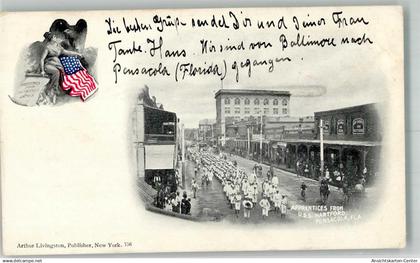 Die besten Grüße sendet Dir und Deiner Frau
Tante. Hans. Wir sind von Baltimore nach
Pensacola (Florida) gegangen.
APPRENTICES FROM
U.S.S. HARTFORD
PENSACOLA, FLA.
Arthur Livingston, Publisher, New York. 156
Copyright by Ansichtskarten-Center